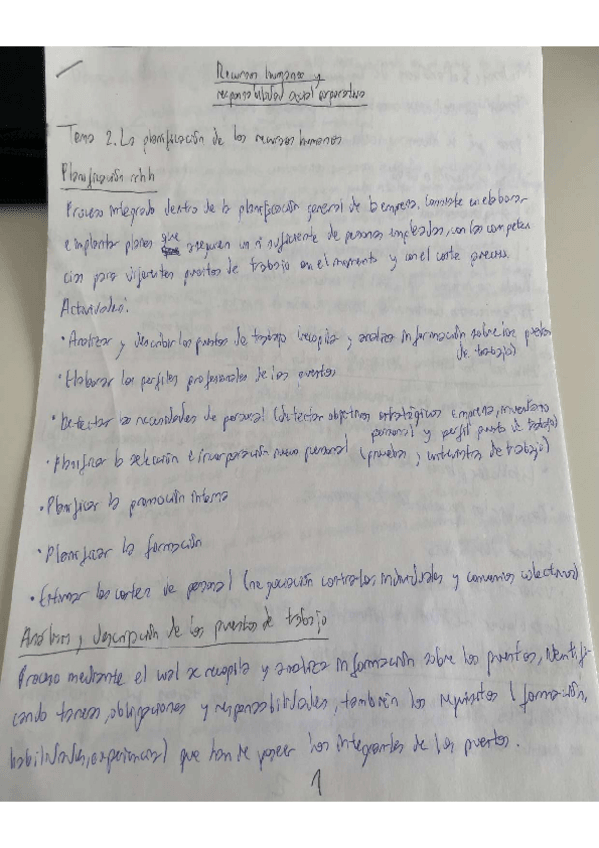 Recursos humanos y
responsabilidad social corporativa
Tema 2. La planificación de los recursos humanos
Planificación rrhh
Proceso integrado dentro de la planificación general de la empresa. Consiste en elaborar
e implantar planes que aseguren un nº suficiente de personas empleadas, con las competen
cias para diferentes puestos de trabajo en el momento y con el coste preciso.
Actividades:
• Analizar y describir los puestos de trabajo (recopila y analiza información sobre los puestos
de trabajo)
• Elaborar los perfiles profesionales de los puestos
• Detectar las necesidades de personal (detectar objetivos estratégicos empresa, inventario
personal y perfil puesto de trabajo)
• Planificar la selección e incorporación nuevo personal (pruebas y entrevistas de trabajo)
• Planificar la promoción interna
• Planificar la formación
• Estimar los costes de personal (negociación contratos individuales y convenios colectivos)
Análisis y descripción de los puestos de trabajo
Proceso mediante el cual se recopila y analiza información sobre los puestos, identifi
cando tareas, obligaciones y responsabilidades, también los requisitos (formación,
habilidades, experiencia) que han de poseer los integrantes de los puestos.
1